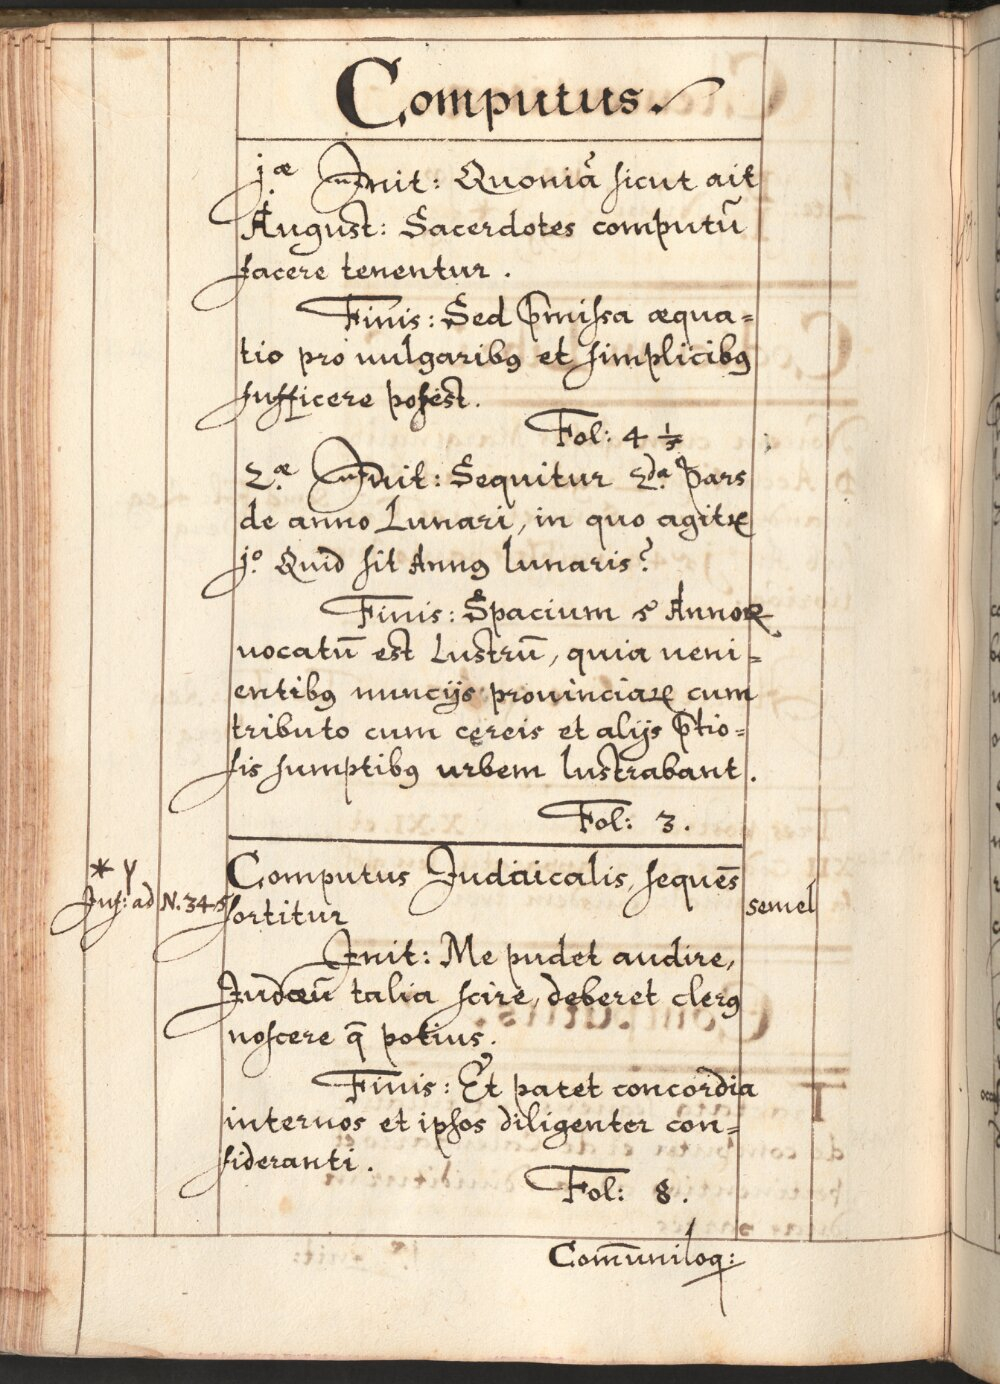 Computus.
jæ Init: Quoniā sicut ait
August: Sacerdotes computū
facere tenentur.
Finis: Sed p̄missa æqua=
tio pro uulgaribꝰ et simplicibꝰ
sufficere potest.
Fol: 4 ½
2.æ Init: Sequitur 2.da Pars
de anno Lunari, in quo agitꝛ
jo. Quid sit Annꝰ lunaris?
Finis: Spacium 5 Annoꝝ
uocatū est Lustrū, quia ueni=
entibꝰ nuncijs prouinciaꝝ cum
tributo cum cereis et alijs p̄tio=
sis sumptibꝰ urbem lustrabant.
Fol: 3.
Computus Judaicalis, sequēs
* γ
Inf: ad N. 345
sortitur
semel
Init: Me pudet audire,
Judæū talia scire, deberet clerꝰ
noscere q̄ potius.
Finis: Et patet concordia
inter nos et ipsos diligenter con=
sideranti.
Fol: 8.
Com̄uniloq: